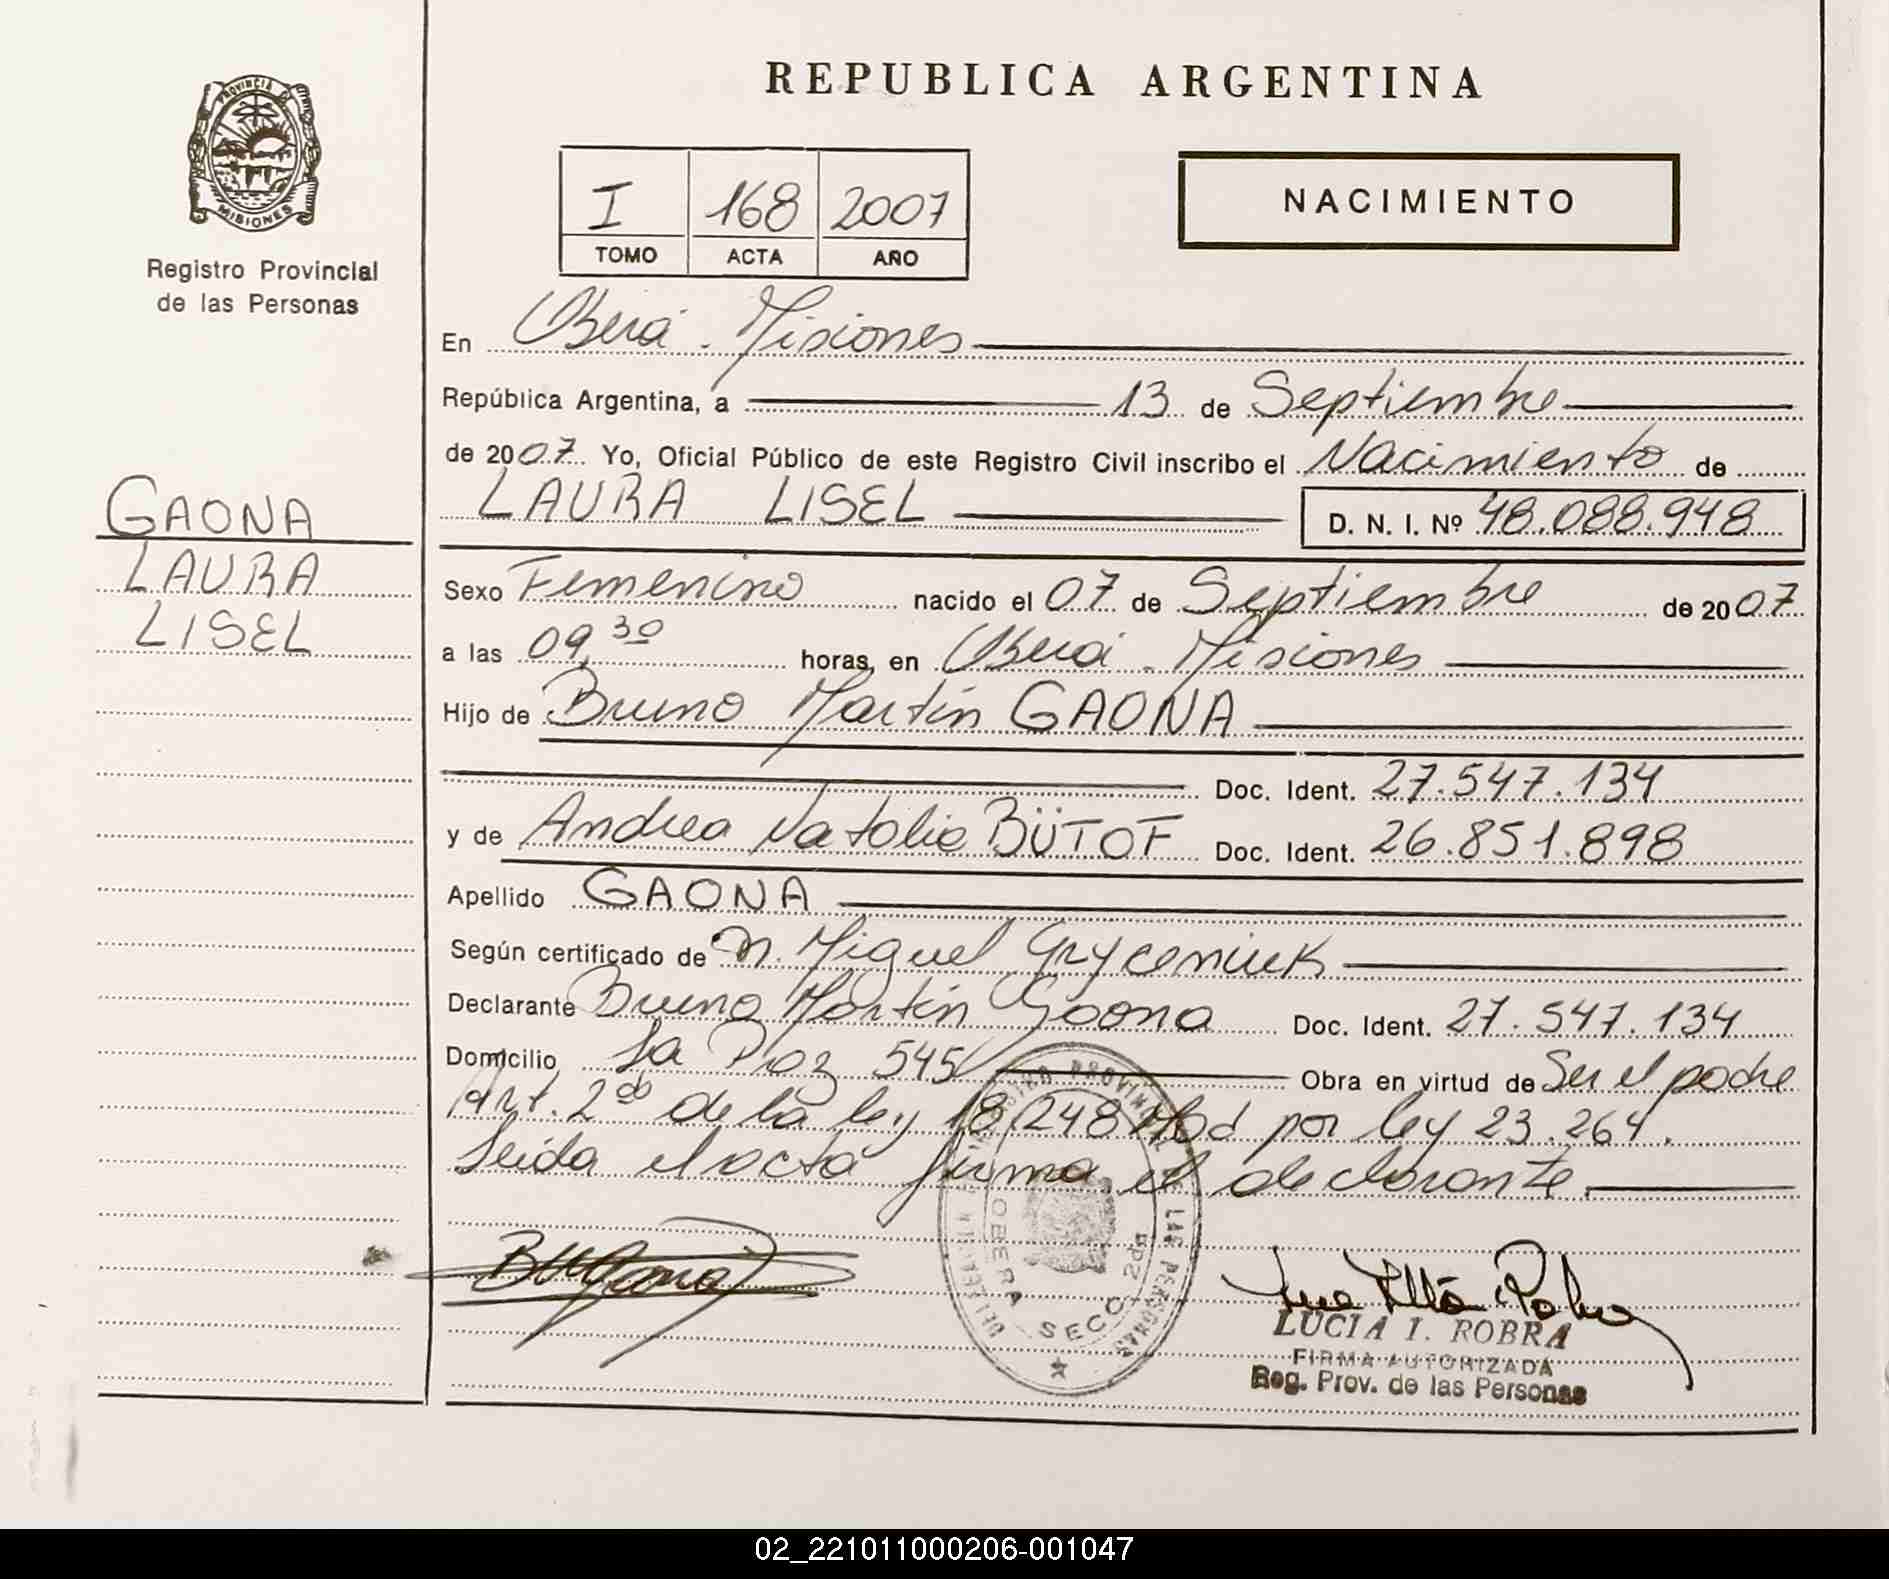 REPUBLICA ARGENTINA
PROVINCIA DE
MISIONES
Registro Provincial
de las Personas
I 168 2007
TOMO ACTA AÑO
NACIMIENTO
GAONA
LAURA
LISEL
En Oberá - Misiones
República Argentina, a 13 de Septiembre
de 2007 Yo, Oficial Público de este Registro Civil inscribo el Nacimiento de
LAURA LISEL D. N. I. Nº 48.088.948
Sexo Femenino nacido el 07 de Septiembre de 2007
a las 09,30 horas, en Oberá - Misiones
Hijo de Bruno Martín GAONA
Doc. Ident. 27.547.134
y de Andrea Natalia BÜTOF Doc. Ident. 26.851.898
Apellido GAONA
Según certificado de M. Miguel Gryceniuk
Declarante Bruno Martín Gaona Doc. Ident. 27.547.134
Domicilio La Paz 545 Obra en virtud de Ser el padre
Art. 2do de la ley 18.248 Mod por ley 23.264.
Leída el acta firma el declarante
OBERA SECC. 2da
LUCIA I. ROBRA
FIRMA AUTORIZADA
Reg. Prov. de las Personas
02_221011000206-001047